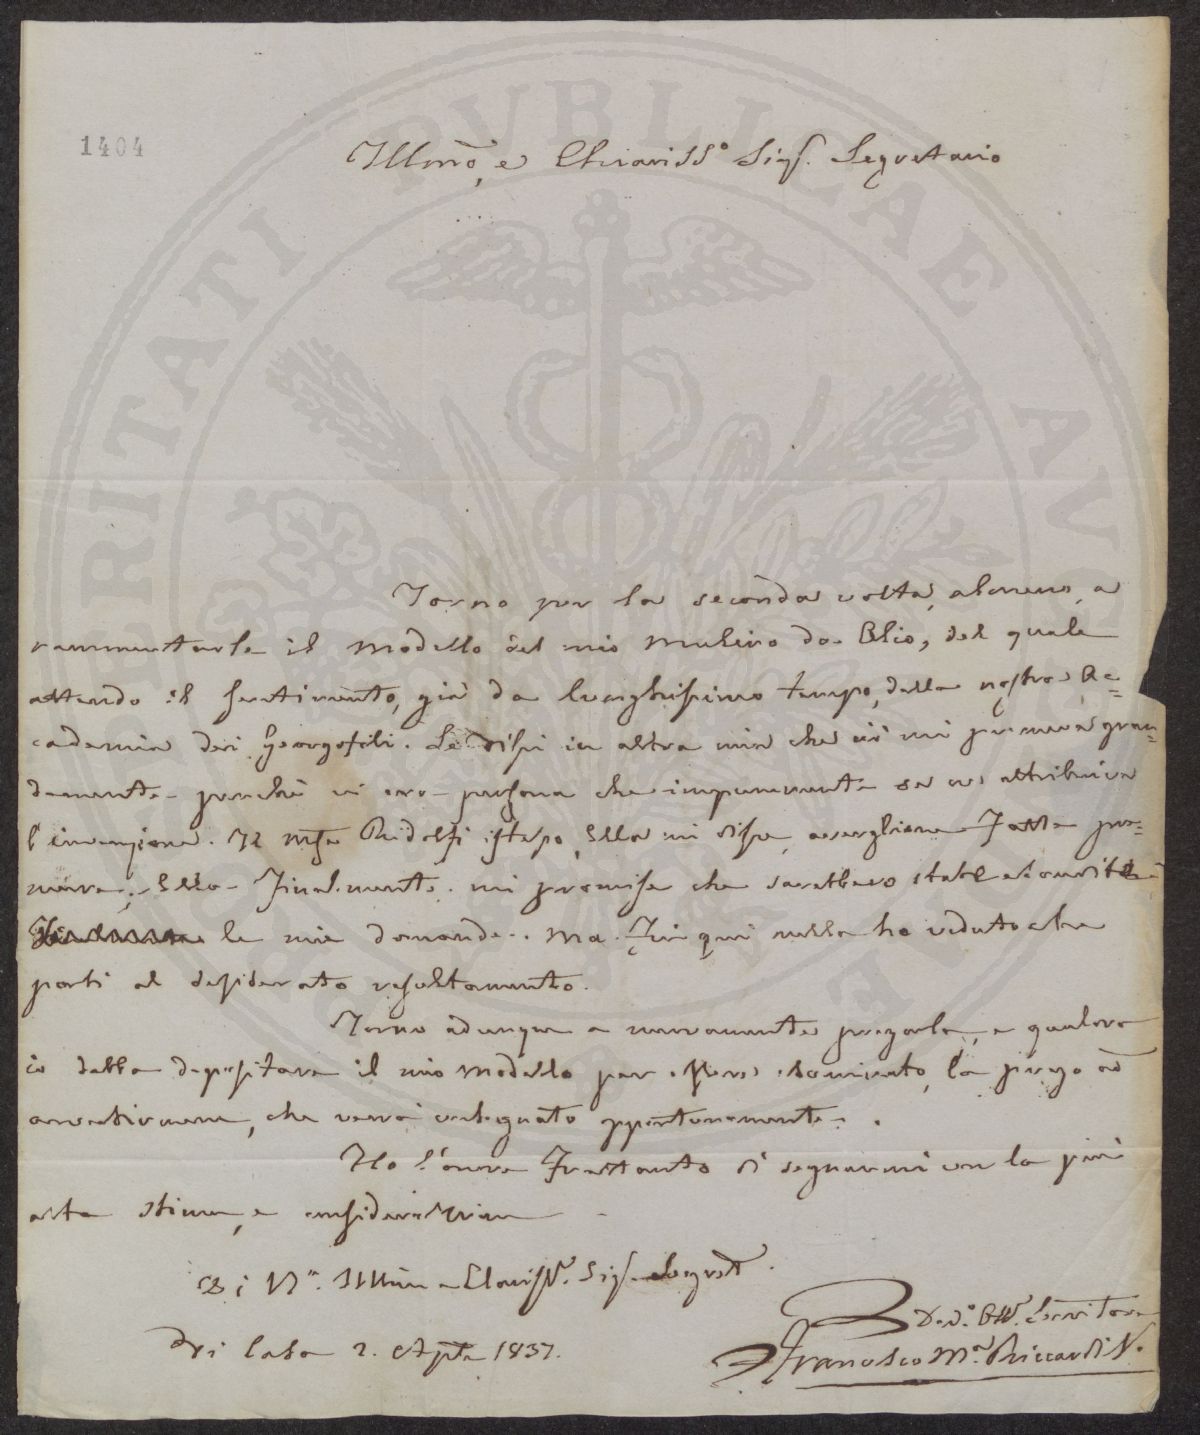 1404
Illmo, e Chiariss.o Sig.r Segretario
Torno per la seconda volta, almeno, a
rammentarle il modello del mio mulino da Olio, del quale
attendo il sentimento, già da lunghissimo tempo, della nostra Ac=
cademia dei Georgofili. Le dissi in altra mia che ciò mi premeva gran=
demente perchè vi era persona che impunemente se ne attribuiva
l'invenzione. Il Mse Ridolfi istesso, Ella mi disse, avergliene fatta pre=
mura; Ella finalmente mi promise che sarebbero state esaudite
le mie domande. Ma fin qui nulla ho veduto che
porti al desiderato resultamento.
Torno adunque a nuovamente pregarla, e qualora
io debba depositare il mio modello per, la prego ad
avvertirmene, che verrà consegnato opportunamente.
Ho l'onore frattanto di segnarmi con la più
alta stima, e considerazione
Di V.a Illma e Chariss. Sig. Segret.
Di Casa 2. Aple 1837.
Dev.o Obb. Servitore
Francesco M.a Riccardi V.
VERITATI PVBLICAE